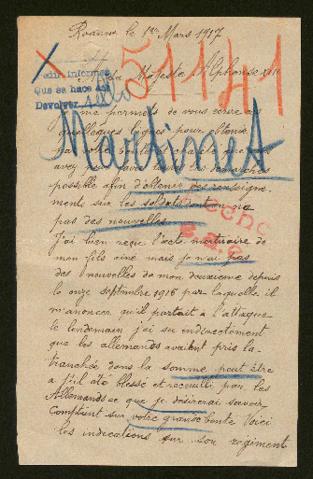 Roanne le 1er Mars 1917
51141
A Sa Majesté Alphonse XIII
Pedir informes
Que se hace con
Devolver
permets de vous écrire
quelleques lignes pour obtenir
Martinet
avez
possible afin d'obtenir des renseigne
ments sur les soldats dont on n'a
pas des nouvelles
J'ai bien reçue l'acte mortuaire de
mon fils ainé mais je n'ai pas
des nouvelles de mon deuxieme depuis
le onze septembre 1916 par laquelle il
m'anoncer qu'il partait à l'attaque
le lendemain j'ai su endirectement
que les allemands avaient pris la
tranchée dans la somme peut être
a t'il été blessé et recueilli par les
Allemands ce que je désirerai savoir
Comptant sur votre grande bonté Voici
les indications sur son regiment